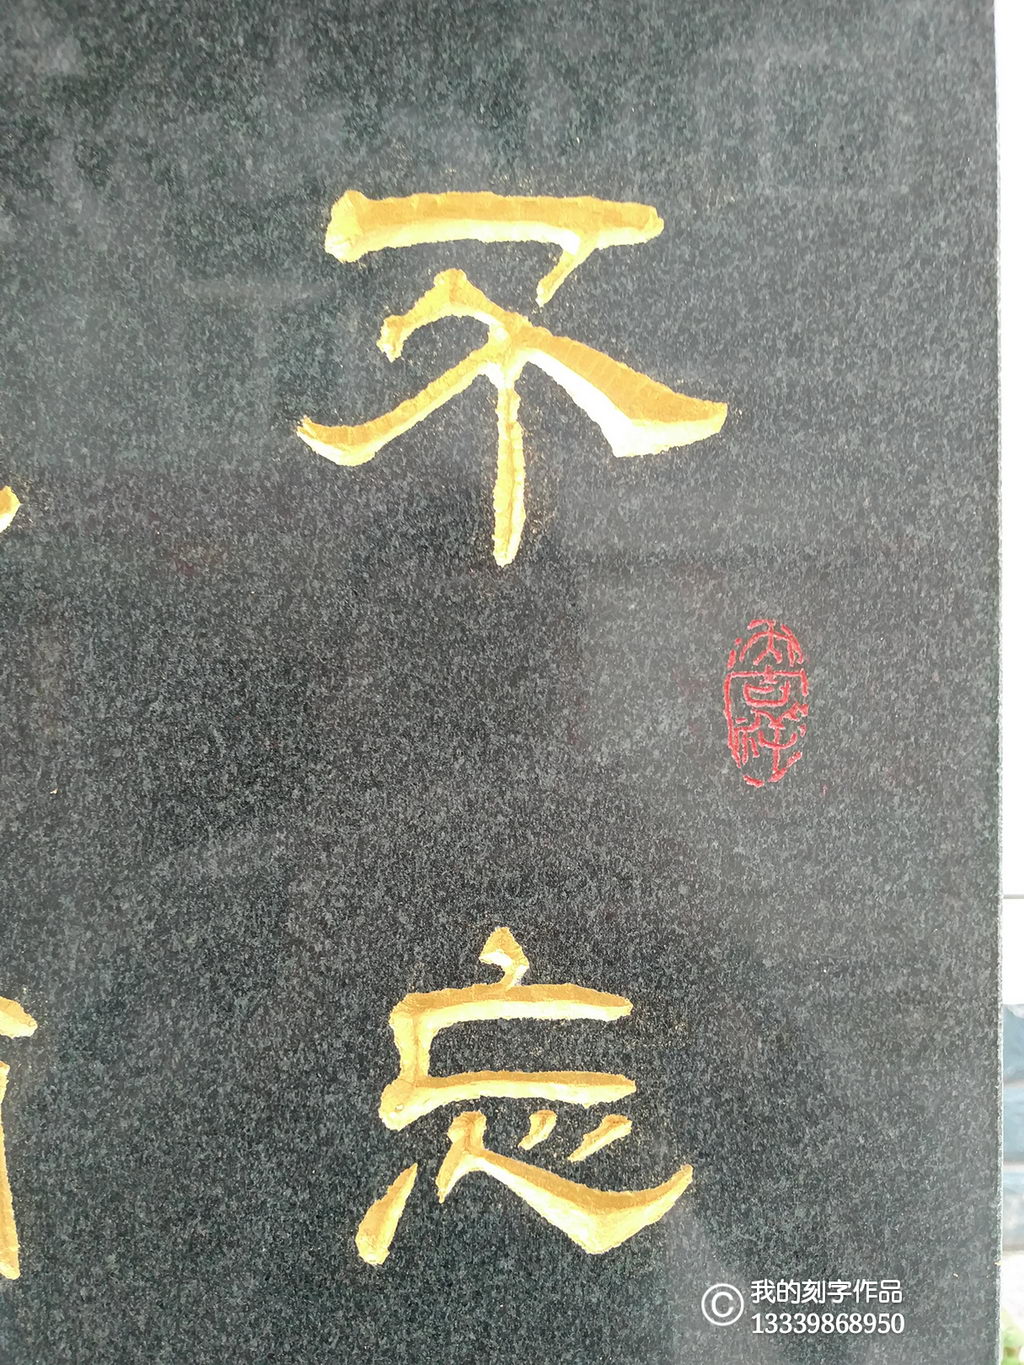 不忘
©我的刻字作品
13339868950